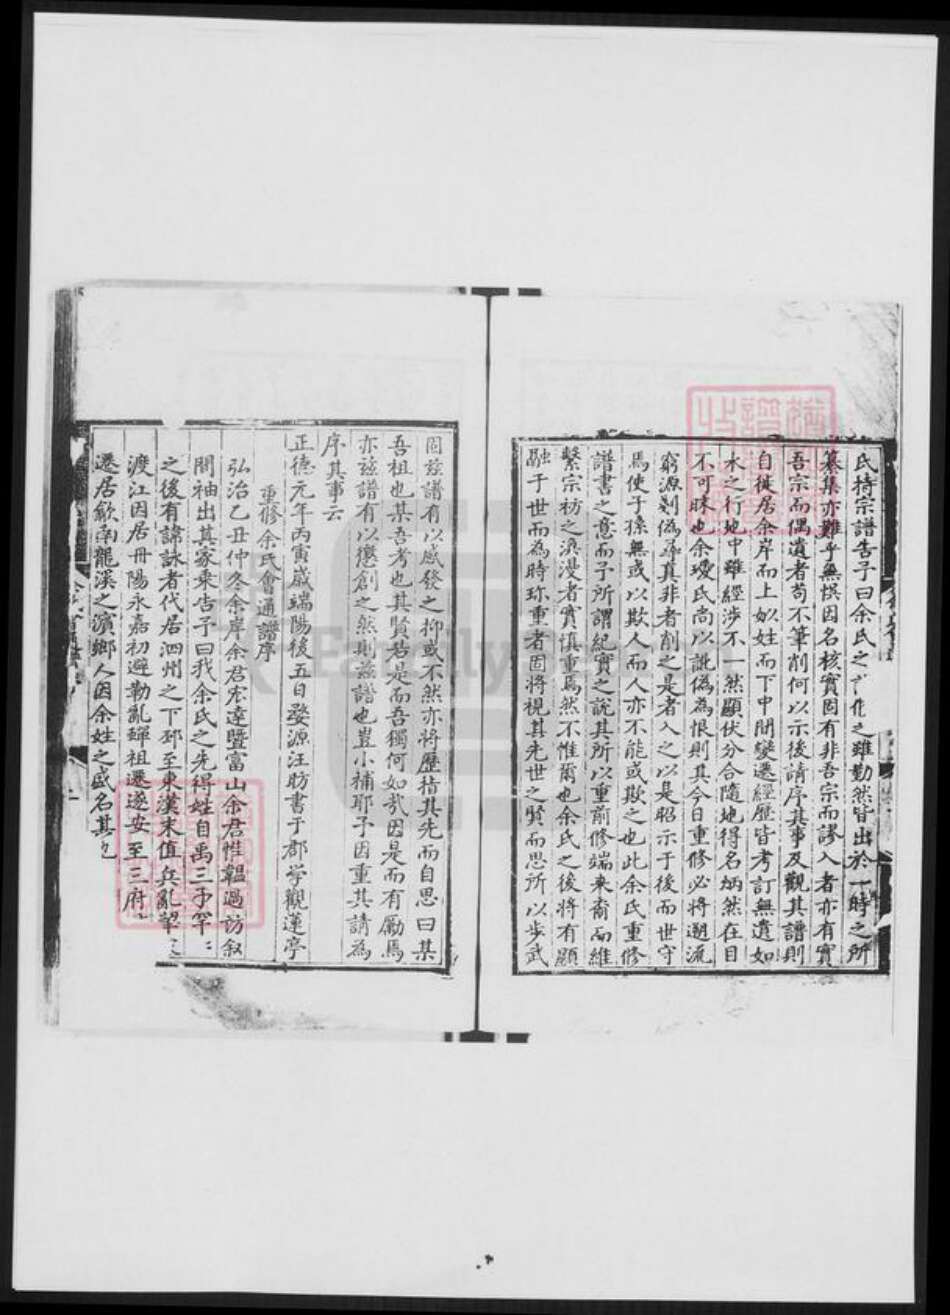 氏持宗譜告予曰余氏之作之雖勤然皆出於一時之所
纂集亦難乎無悞因名核實固有非吾宗而謬入者亦有實
吾宗而偶遺者苟不筆削何以示後請序其事及觀其譜則
自徙居余岸而上姒姓而下中間變遷經歷皆考訂無遺如
水之行地中雖經涉不一然顯伏分合隨地得名炳然在目
不可昧也余璦氏尚以訛偽為恨則其今日重修必將遡流
窮源剗偽尋真非者削之是者入之以是昭示于後而世守
焉使子孫無或以欺人而人亦不能或欺之也此余氏重修
譜書之意而予所謂紀實之說其所以重前修端來裔而維
繫宗祊之渙漫者實慎重焉然不惟爾也余氏之後將有顯
融于世而為時珎重者固將視其先世之賢而思所以步武
固玆譜有以感發之抑或不然亦將歷指其先而自思曰某
吾祖也某吾考也其賢若是而吾獨何如哉因是而有勵焉
亦玆譜有以懲創之然則玆譜也豈小補耶予因重其請為
序其事云
正德元年丙寅歲端陽後五日婺源汪昉書于郡學觀蓮亭
重修余氏會通譜序
弘治乙丑仲冬余岸余君宏達暨富山余君惟韞過訪叙
間袖出其家乘告予曰我余氏之先得姓自禹三子罕
之後有諱詠者代居泗州之下邳至東漢末值兵亂挈
渡江因居丹陽永嘉初避勒亂韗祖遷遂安至三府
遷居歙南龍溪之濱鄉人因余姓之盛名其